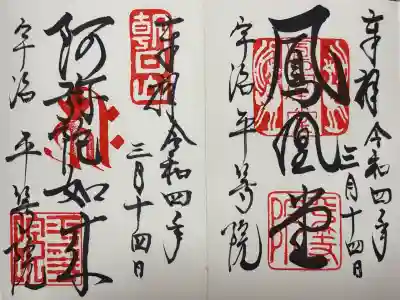 奉拝 令和四年
三月十四日
鳳凰堂
宇治 平等院
奉拝 令和四年
三月十四日
阿弥陀如来
宇治 平等院